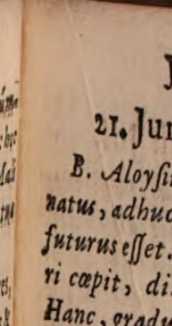 21. Jun
B. Aloysi
natus, adhuc
futurus esset.
ri cœpit, di
Hanc, gradu